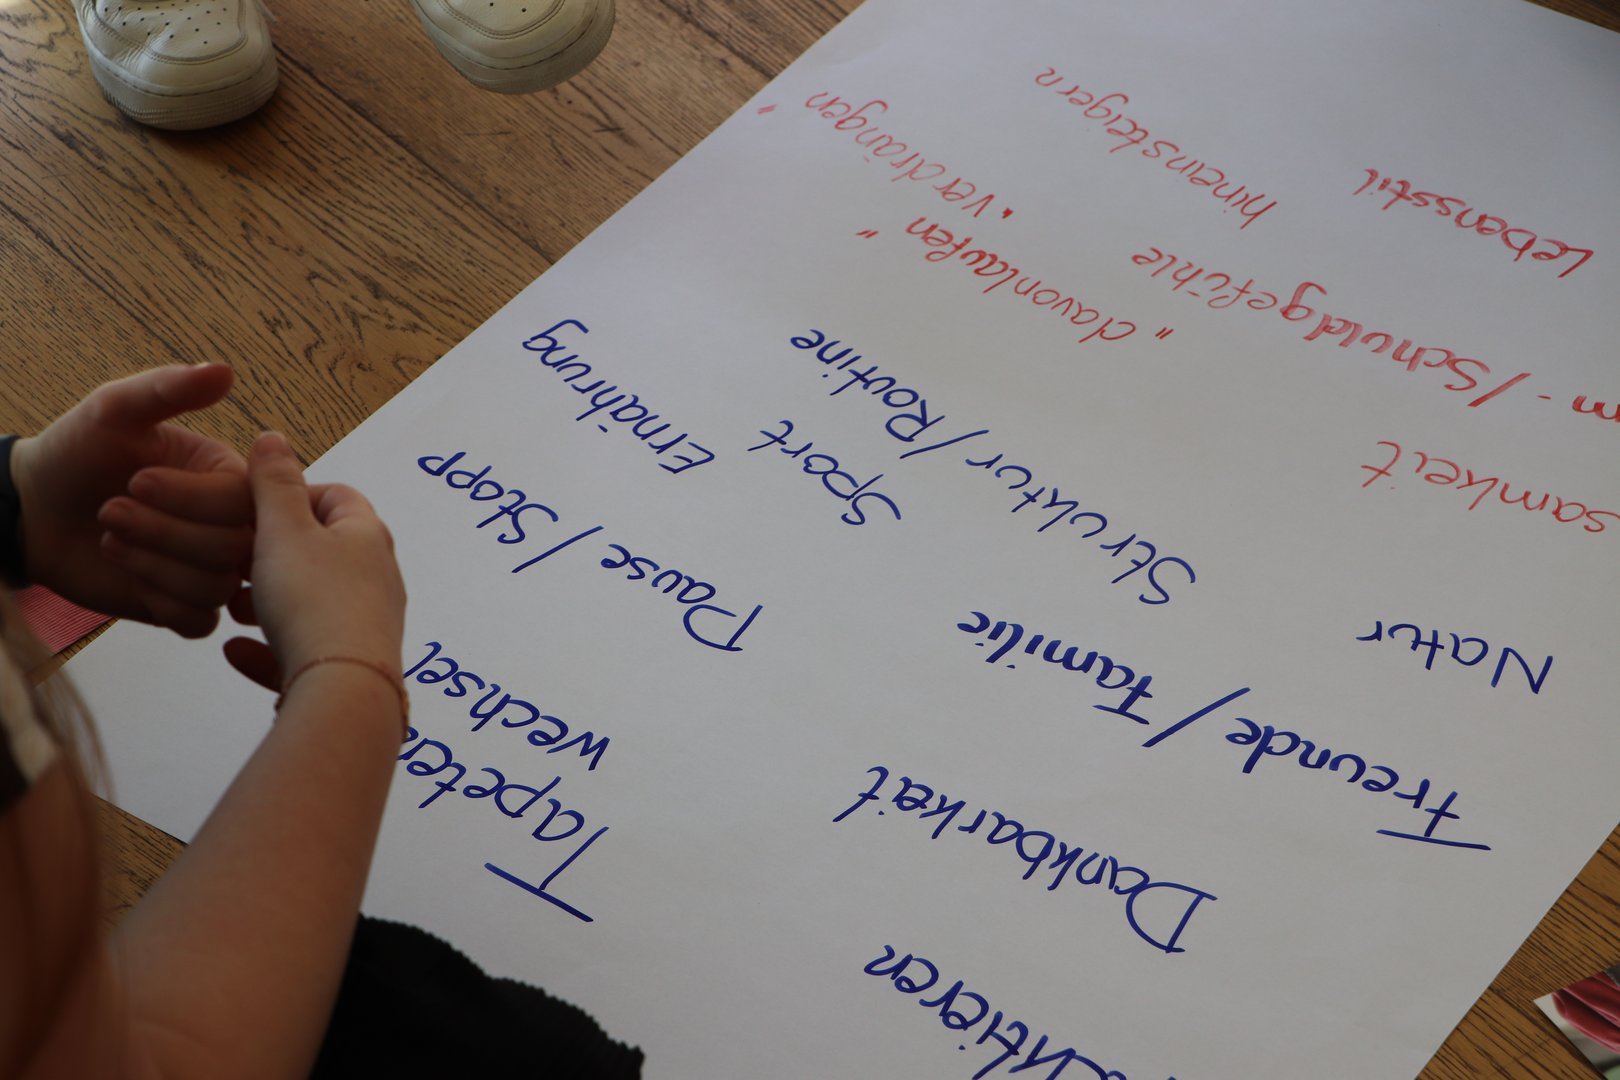 ktieren
Dankbarkeit
Tapeten
wechsel
Freunde / Familie
Pause / Stopp
Natur
Struktur / Routine
Sport
Ernährung
samkeit
m-/Schuldgefühle
"davonlaufen"
"verdrängen"
Lebensstil
hineinsteigern